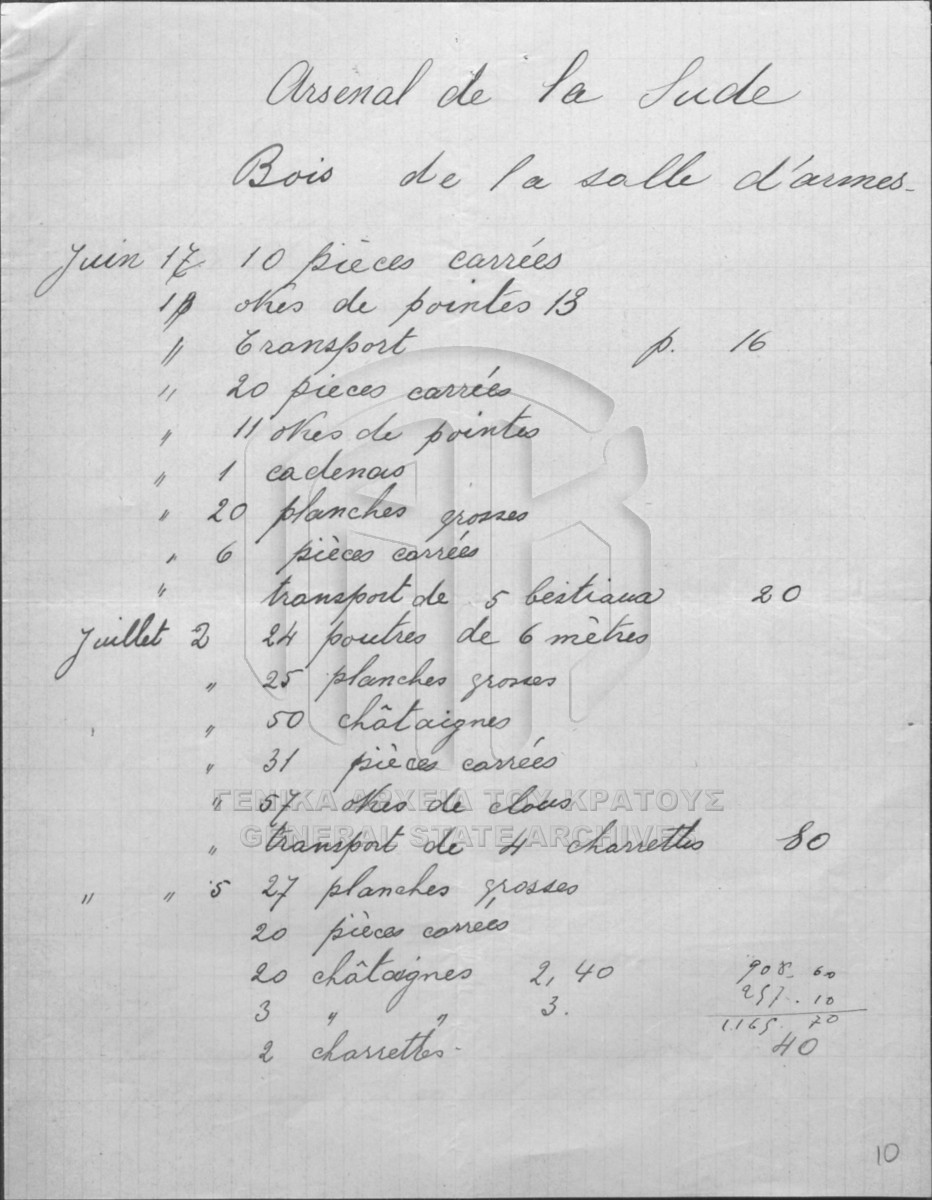 Arsenal de la Sude
Bois de la salle d'armes.
Juin 17 10 pièces carrées
18 okes de pointes 13
" transport p. 16
" 20 pièces carrées
" 11 okes de pointes
" 1 cadenas
" 20 planches grosses
" 6 pièces carrées
" transport de 5 bestiaux 20
Juillet 2 24 poutres de 6 mètres
" 25 planches grosses
" 50 châtaignes
" 31 pièces carrées
" 57 okes de clous
ΓΕΝΙΚΑ ΑΡΧΕΙΑ ΤΟΥ ΚΡΑΤΟΥΣ
GENERAL STATE ARCHIVES
" transport de 4 charrettes 80
" " 5 27 planches grosses
20 pièces carrées
20 châtaignes 2,40 908. 60
3 " " 3. 257. 10
1165. 70
2 charrettes. 40
10